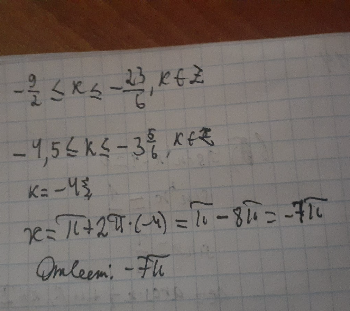 -9/2 ≤ к ≤ -23/6, к ∈ Z
-4,5 ≤ к ≤ -3 5/6, к ∈ Z
к = -4
x = π + 2π·(-4) = π - 8π = -7π
Ответ: -7π